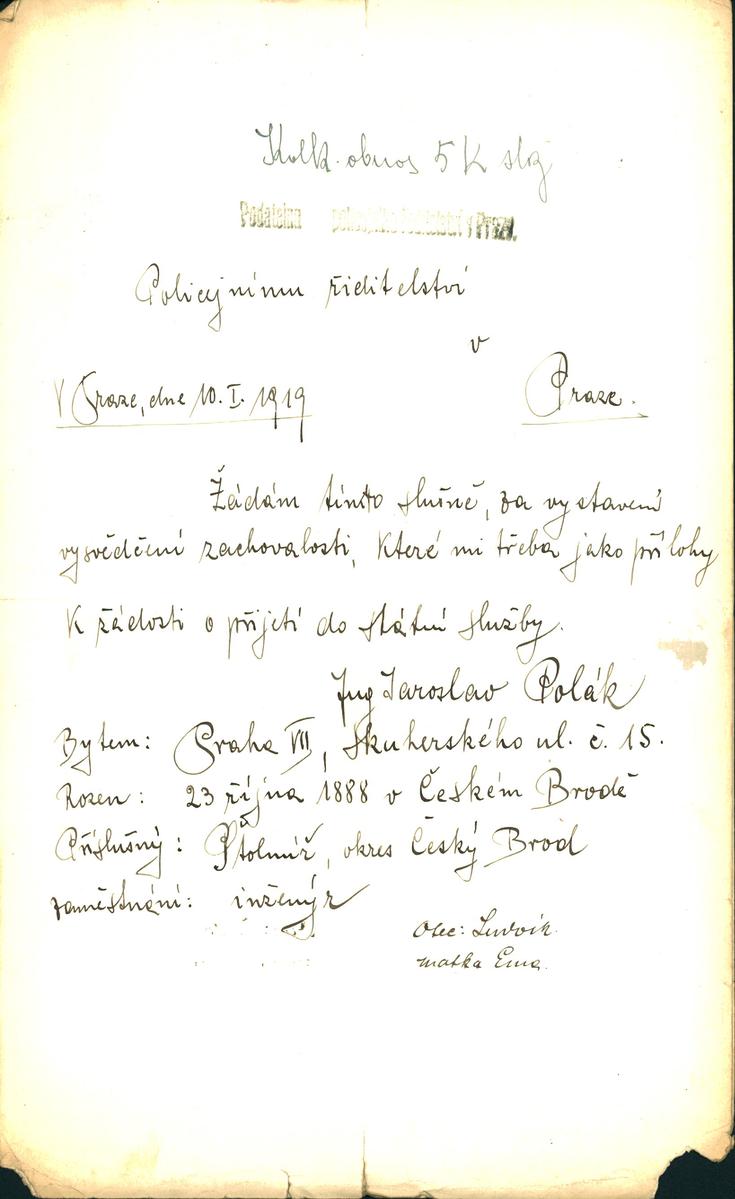 Kolk. obnos 5 K slož
Podatelna policejního ředitelství v Praze.
Policejnímu řiditelství
v
V Praze, dne 10. I. 1919
Praze.
Žádám tímto slušně, za vystavení
vysvědčení zachovalosti, které mi třeba jako přílohy
k žádosti o přijetí do státní služby.
Ing Jaroslav Polák
Bytem: Praha VII, Skuherského ul. č. 15.
Rozen: 23 října 1888 v Českém Brodě
Příslušný: Štolmíř, okres Český Brod
zaměstnání: inženýr
Otec: Ludvík
matka Ema.